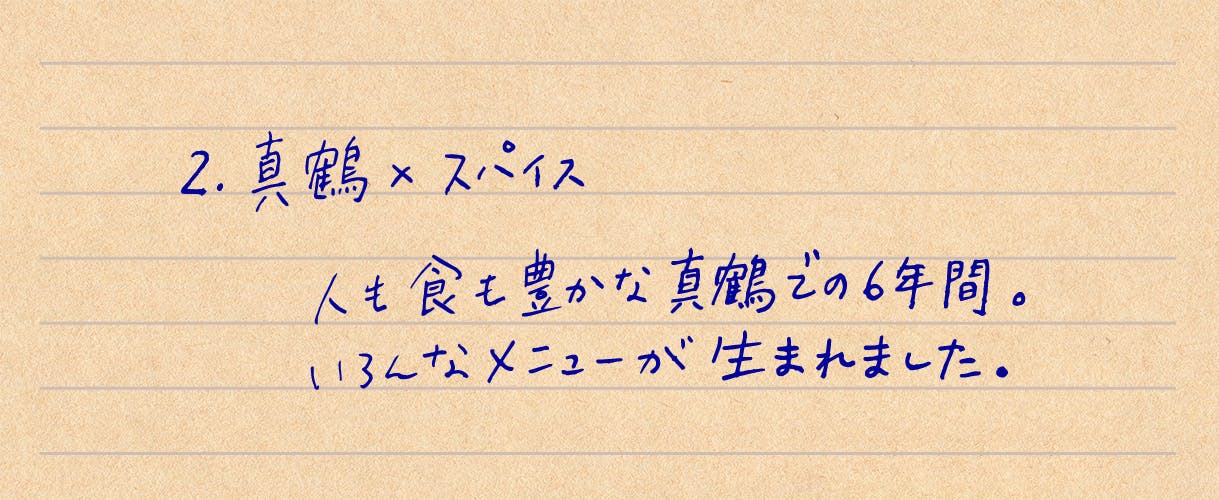 2. 真鶴 × スパイス
人も食も豊かな真鶴での6年間。
いろんなメニューが生まれました。